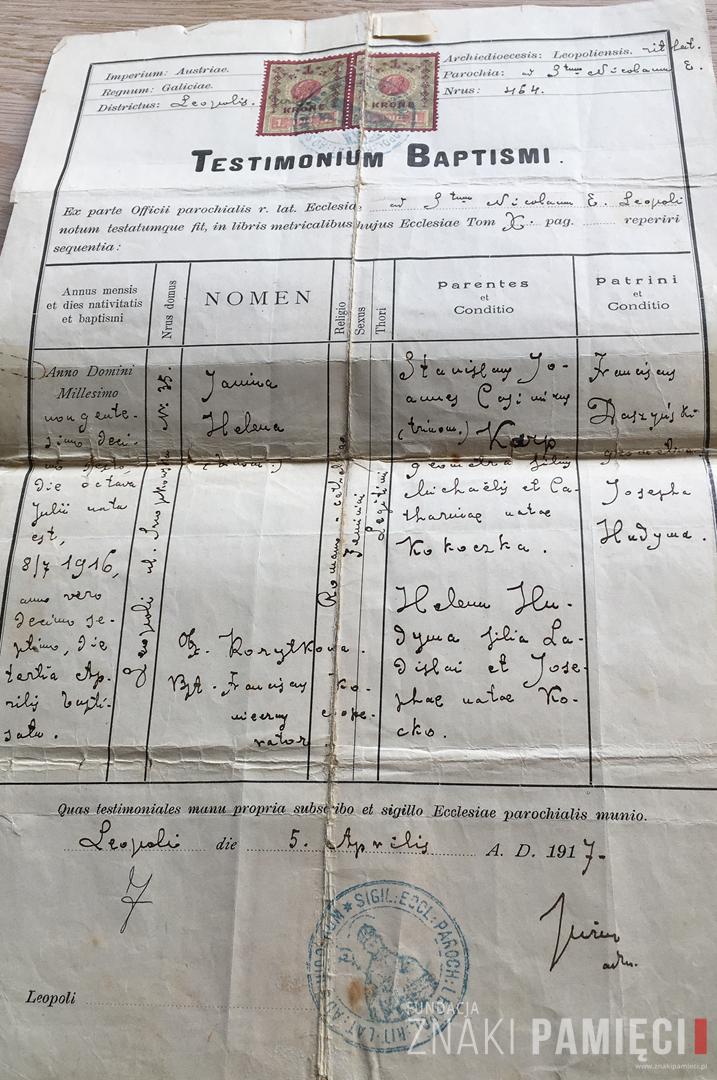 Imperium: Austriae.
Regnum: Galiciae.
Districtus: Leopolis.
1 KRONE
1 KRONE
Archiedioecesis: Leopoliensis. rit. lat.
Parochia: ad Stum Nicolaum E.
Nrus: 464.
TESTIMONIUM BAPTISMI.
Ex parte Officii parochialis r. lat. Ecclesiae ad Stum Nicolaum E. Leopoli
notum testatumque fit, in libris metricalibus hujus Ecclesiae Tom X. pag. reperiri
sequentia:
Annus mensis
et dies nativitatis
et baptismi
Nrus domus
NOMEN
Religio
Sexus
Thori
Parentes
et
Conditio
Patrini
et
Conditio
Anno Domini
Millesimo
nongente-
simo deci-
mo sexto,
die octava
Julii nata
est,
8/7 1916,
anno vero
decimo se-
ptimo, die
tertia Ap-
rilis bapti-
sata.
Leopoli ul. Snopkowska N: 35.
Janina
Helena
(binom.)
Obst. Korytkowa.
Bapt. Franciscus Ko-
nicerny coope-
rator
Romano-catholica
Feminini
Legitimi
Stanislaus Jo-
annes Casimirus
(trinom.) Karp
geometra filius
Michaëlis et Ca-
tharinae natae
Kokoczka.
Helena Hu-
dyma filia La-
dislai et Jose-
phae natae Ko-
cko.
Franciscus
Daszyński
geometra
Josepha
Hudyma.
Quas testimoniales manu propria subscribo et sigillo Ecclesiae parochialis munio.
Leopoli die 5. Aprilis A. D. 1917.
adm.
SIGIL: ECCL: PAROCH: RIT. LAT.
Leopoli
FUNDACJA
ZNAKI PAMIĘCI
www.znakipamieci.pl